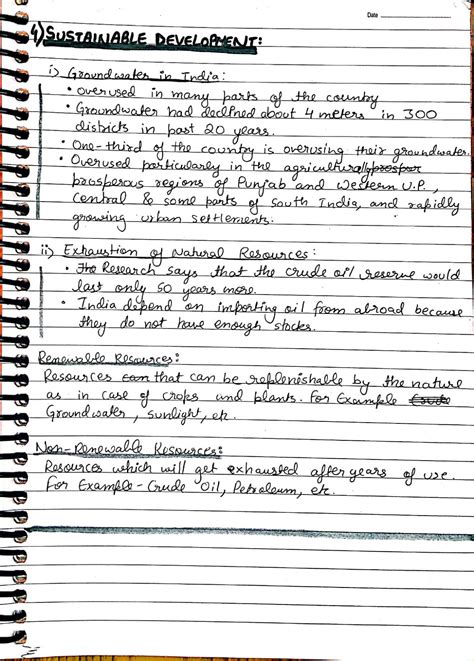 Date
4) SUSTAINABLE DEVELOPMENT:
i) Groundwater in India:
• overused in many parts of the country
• Groundwater had declined about 4 meters in 300
districts in past 20 years.
• One-third of the country is overusing their groundwater.
• Overused particularly in the agriculturally prosper
prosperous regions of Punjab and Western U.P.,
Central & some parts of South India, and rapidly
growing urban settlements.
ii) Exhaustion of Natural Resources:
• The Research says that the crude oil reserve would
last only 50 years more.
• India depend on importing oil from abroad because
they do not have enough stocks.
Renewable Resources:
Resources can that can be replenishable by the nature
as in case of crops and plants. for Example Crude
Groundwater, sunlight, etc.
Non-Renewable Resources:
Resources which will get exhausted after years of use.
For Example - Crude Oil, Petroleum, etc.